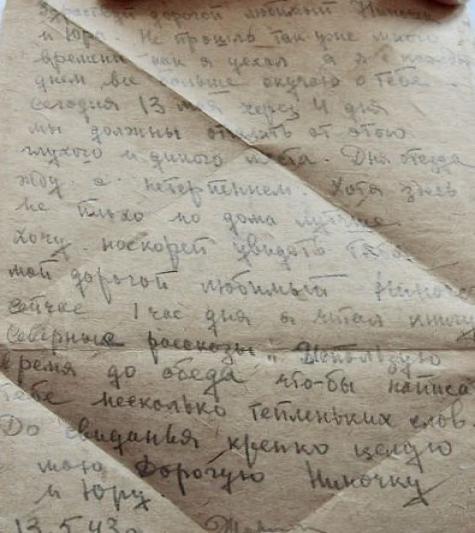 Здраствуй дорогой любимый Ниночка
и Юра. Не прошло так уже много
времени как я уехал а я с каждым
днем все больше скучаю о тебе.
Сегодня 13 мая через 4 дня
мы должны от этого
глухого и дикого места. Дня отезда
жду с нетерпением. Хотя здесь
не плохо но дома лучше
хочу поскорей увидать тебя
мой дорогой любимый Ниночка
сейчас 1 час дня я читал книгу
Северные рассказы". Использую
время до обеда что-бы написа
тебе несколько тепленьких слов.
До свиданья крепко целую
мою Дорогую Ниночку
и Юру.
13.5.43г.